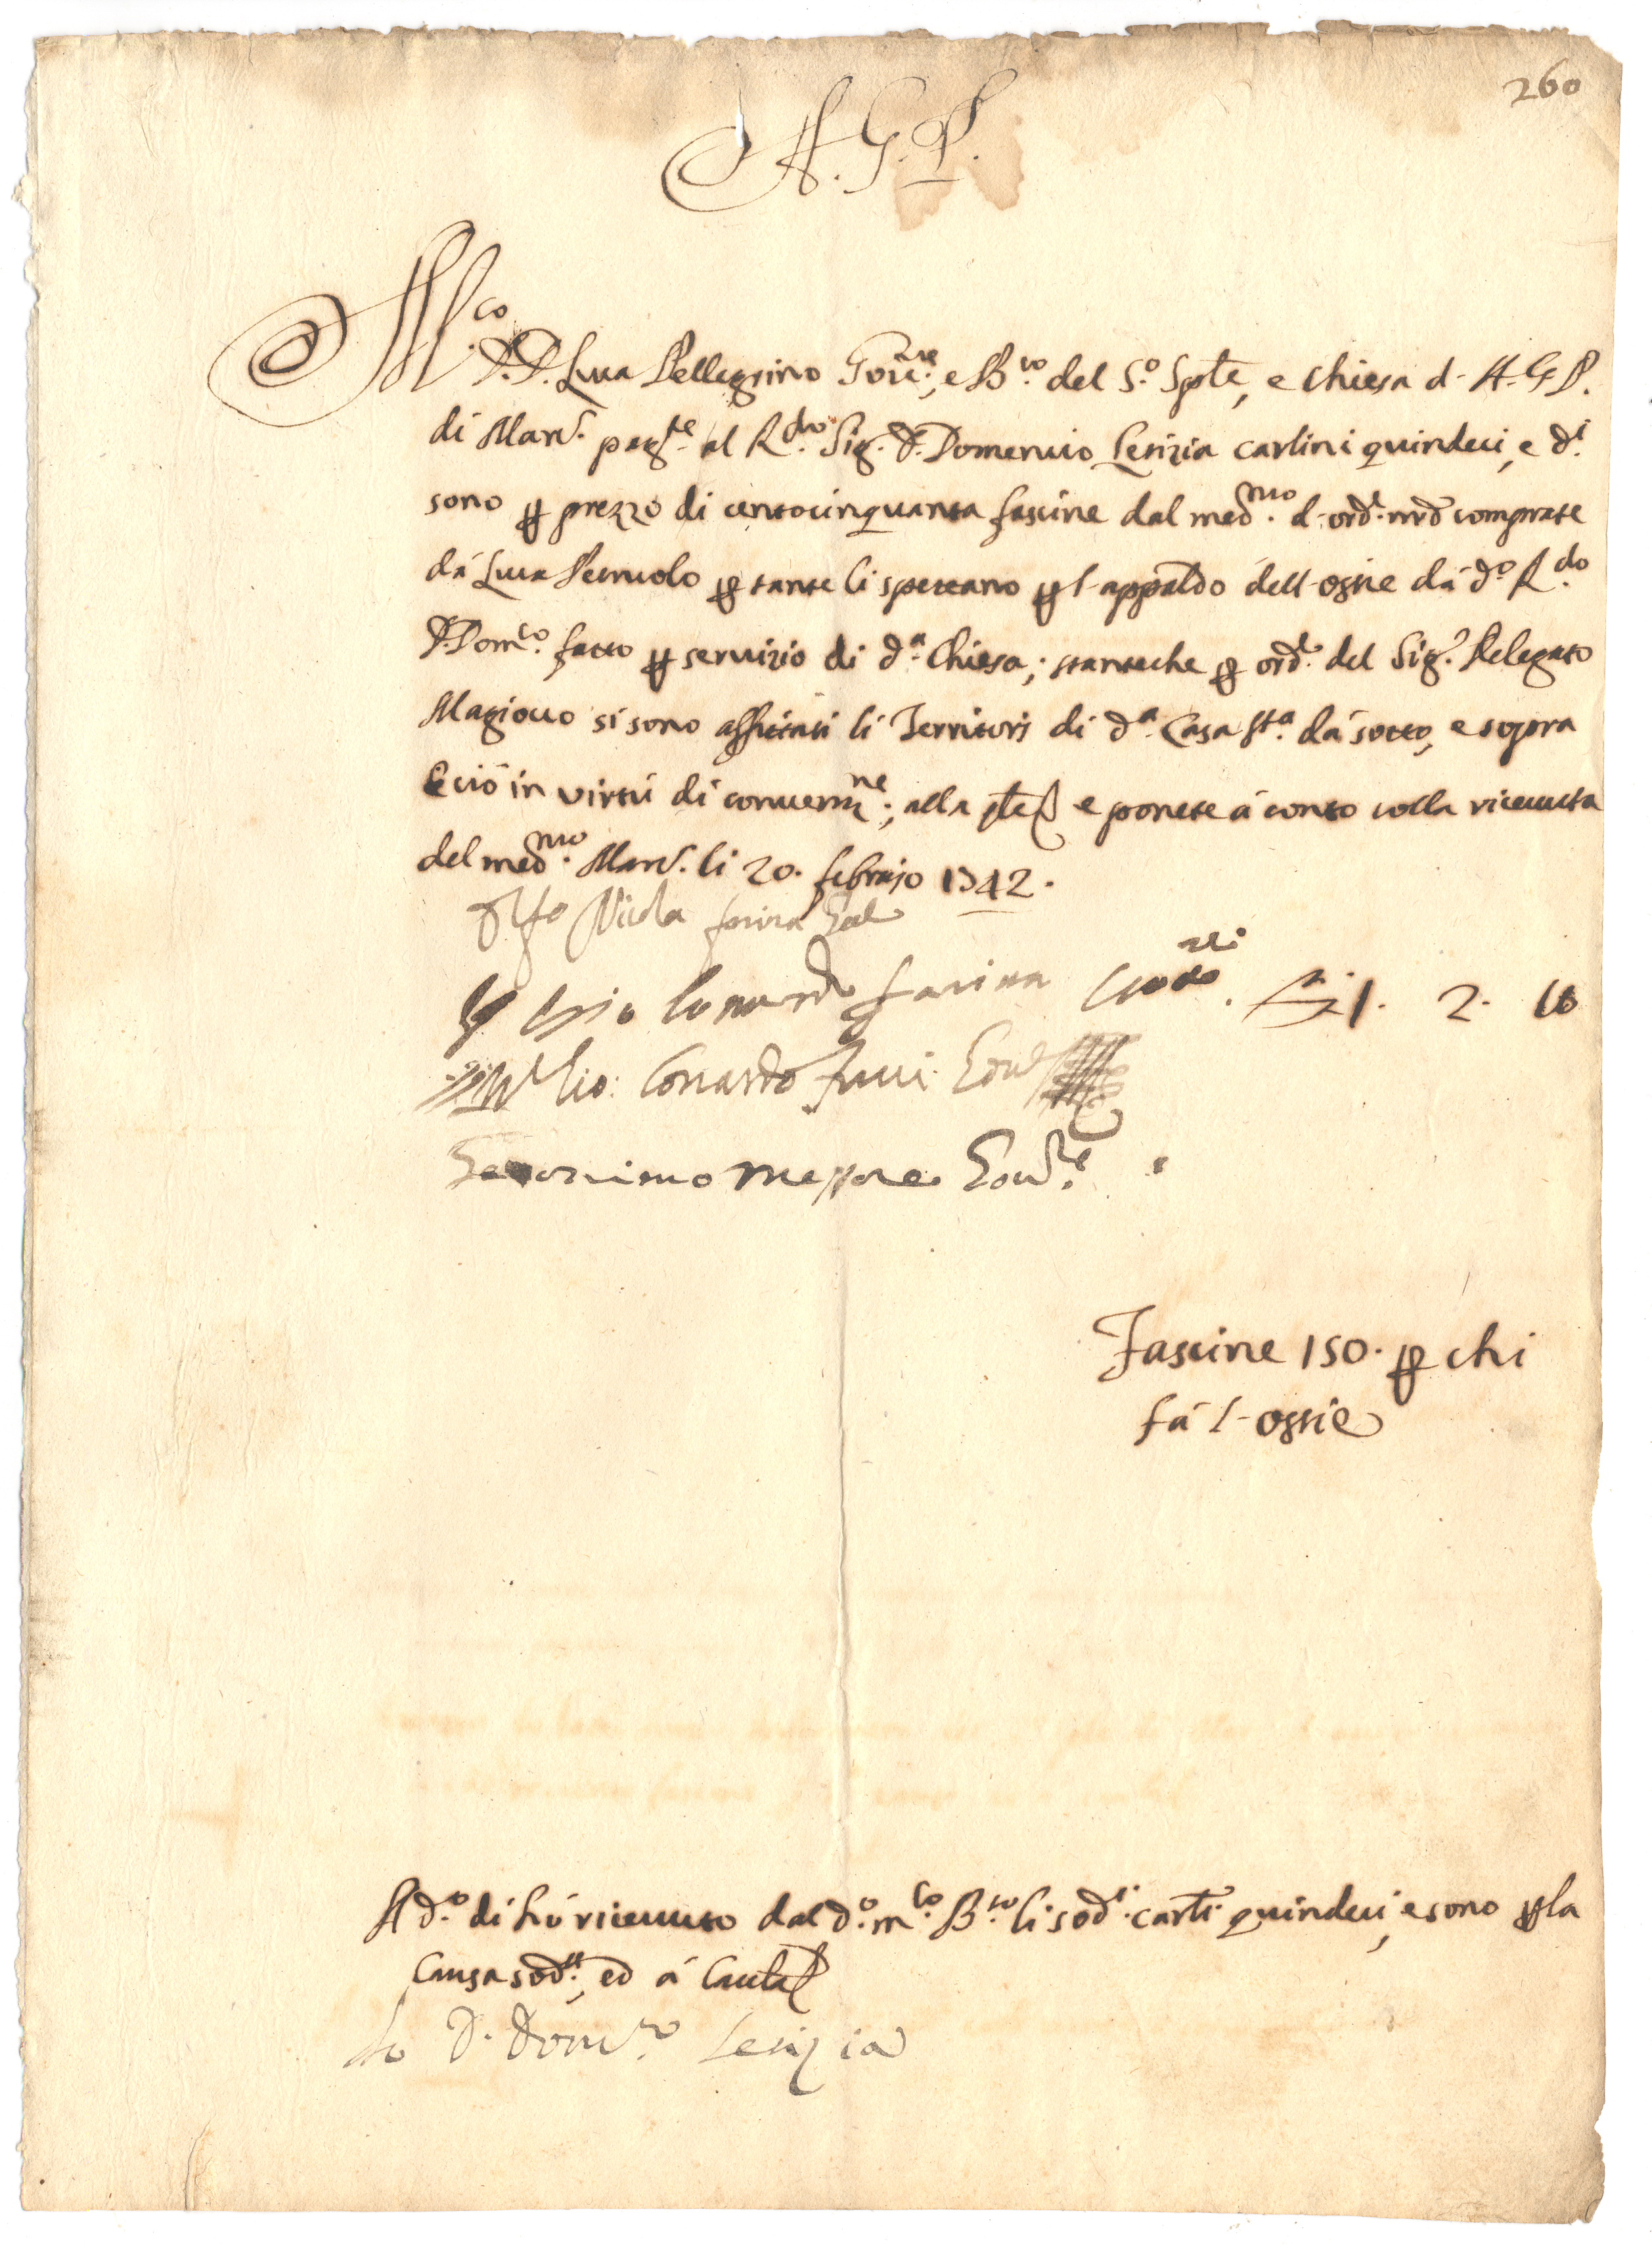 260
A. G. P.
M.co D. D. Luca Pellegrino Gov.re, e B.ro del S.o Sple, e Chiesa d- A. G. P.
di Mard. pag.te al R.do Sig. D. Domenico Letizia carlini quindeci, e d.i
sono p prezzo di centocinquanta fascine dal med.mo d-ord. nro comprate
dà Luca Petruolo p tante li spettano p l-appaldo dell-ostie dà d.o R.do
D. Dom.co fatto p servizio di d.a Chiesa; stanteche p ord. del Sig.r Delegato
Magiocco si sono affittati li Territorj di d.a Casa S.ta dà sotto, e sopra
e ciò in virtù di convenz.ne; alla e ponete à conto colla ricevuta
del med.mo Mard. li 20. febrajo 1742.
Nicola farina
Gio Lonardo farina 1. 2. 10
Gio: Lonardo
Geronimo Messore Gov.re
Fascine 150. p chi
fà l-ostie
A d.o dì hò ricevuto dal d.o m.co B.ro li sod.i carli. quindeci, e sono p la
causa sod.a, ed à cautel
Io D. Dom.co Letizia